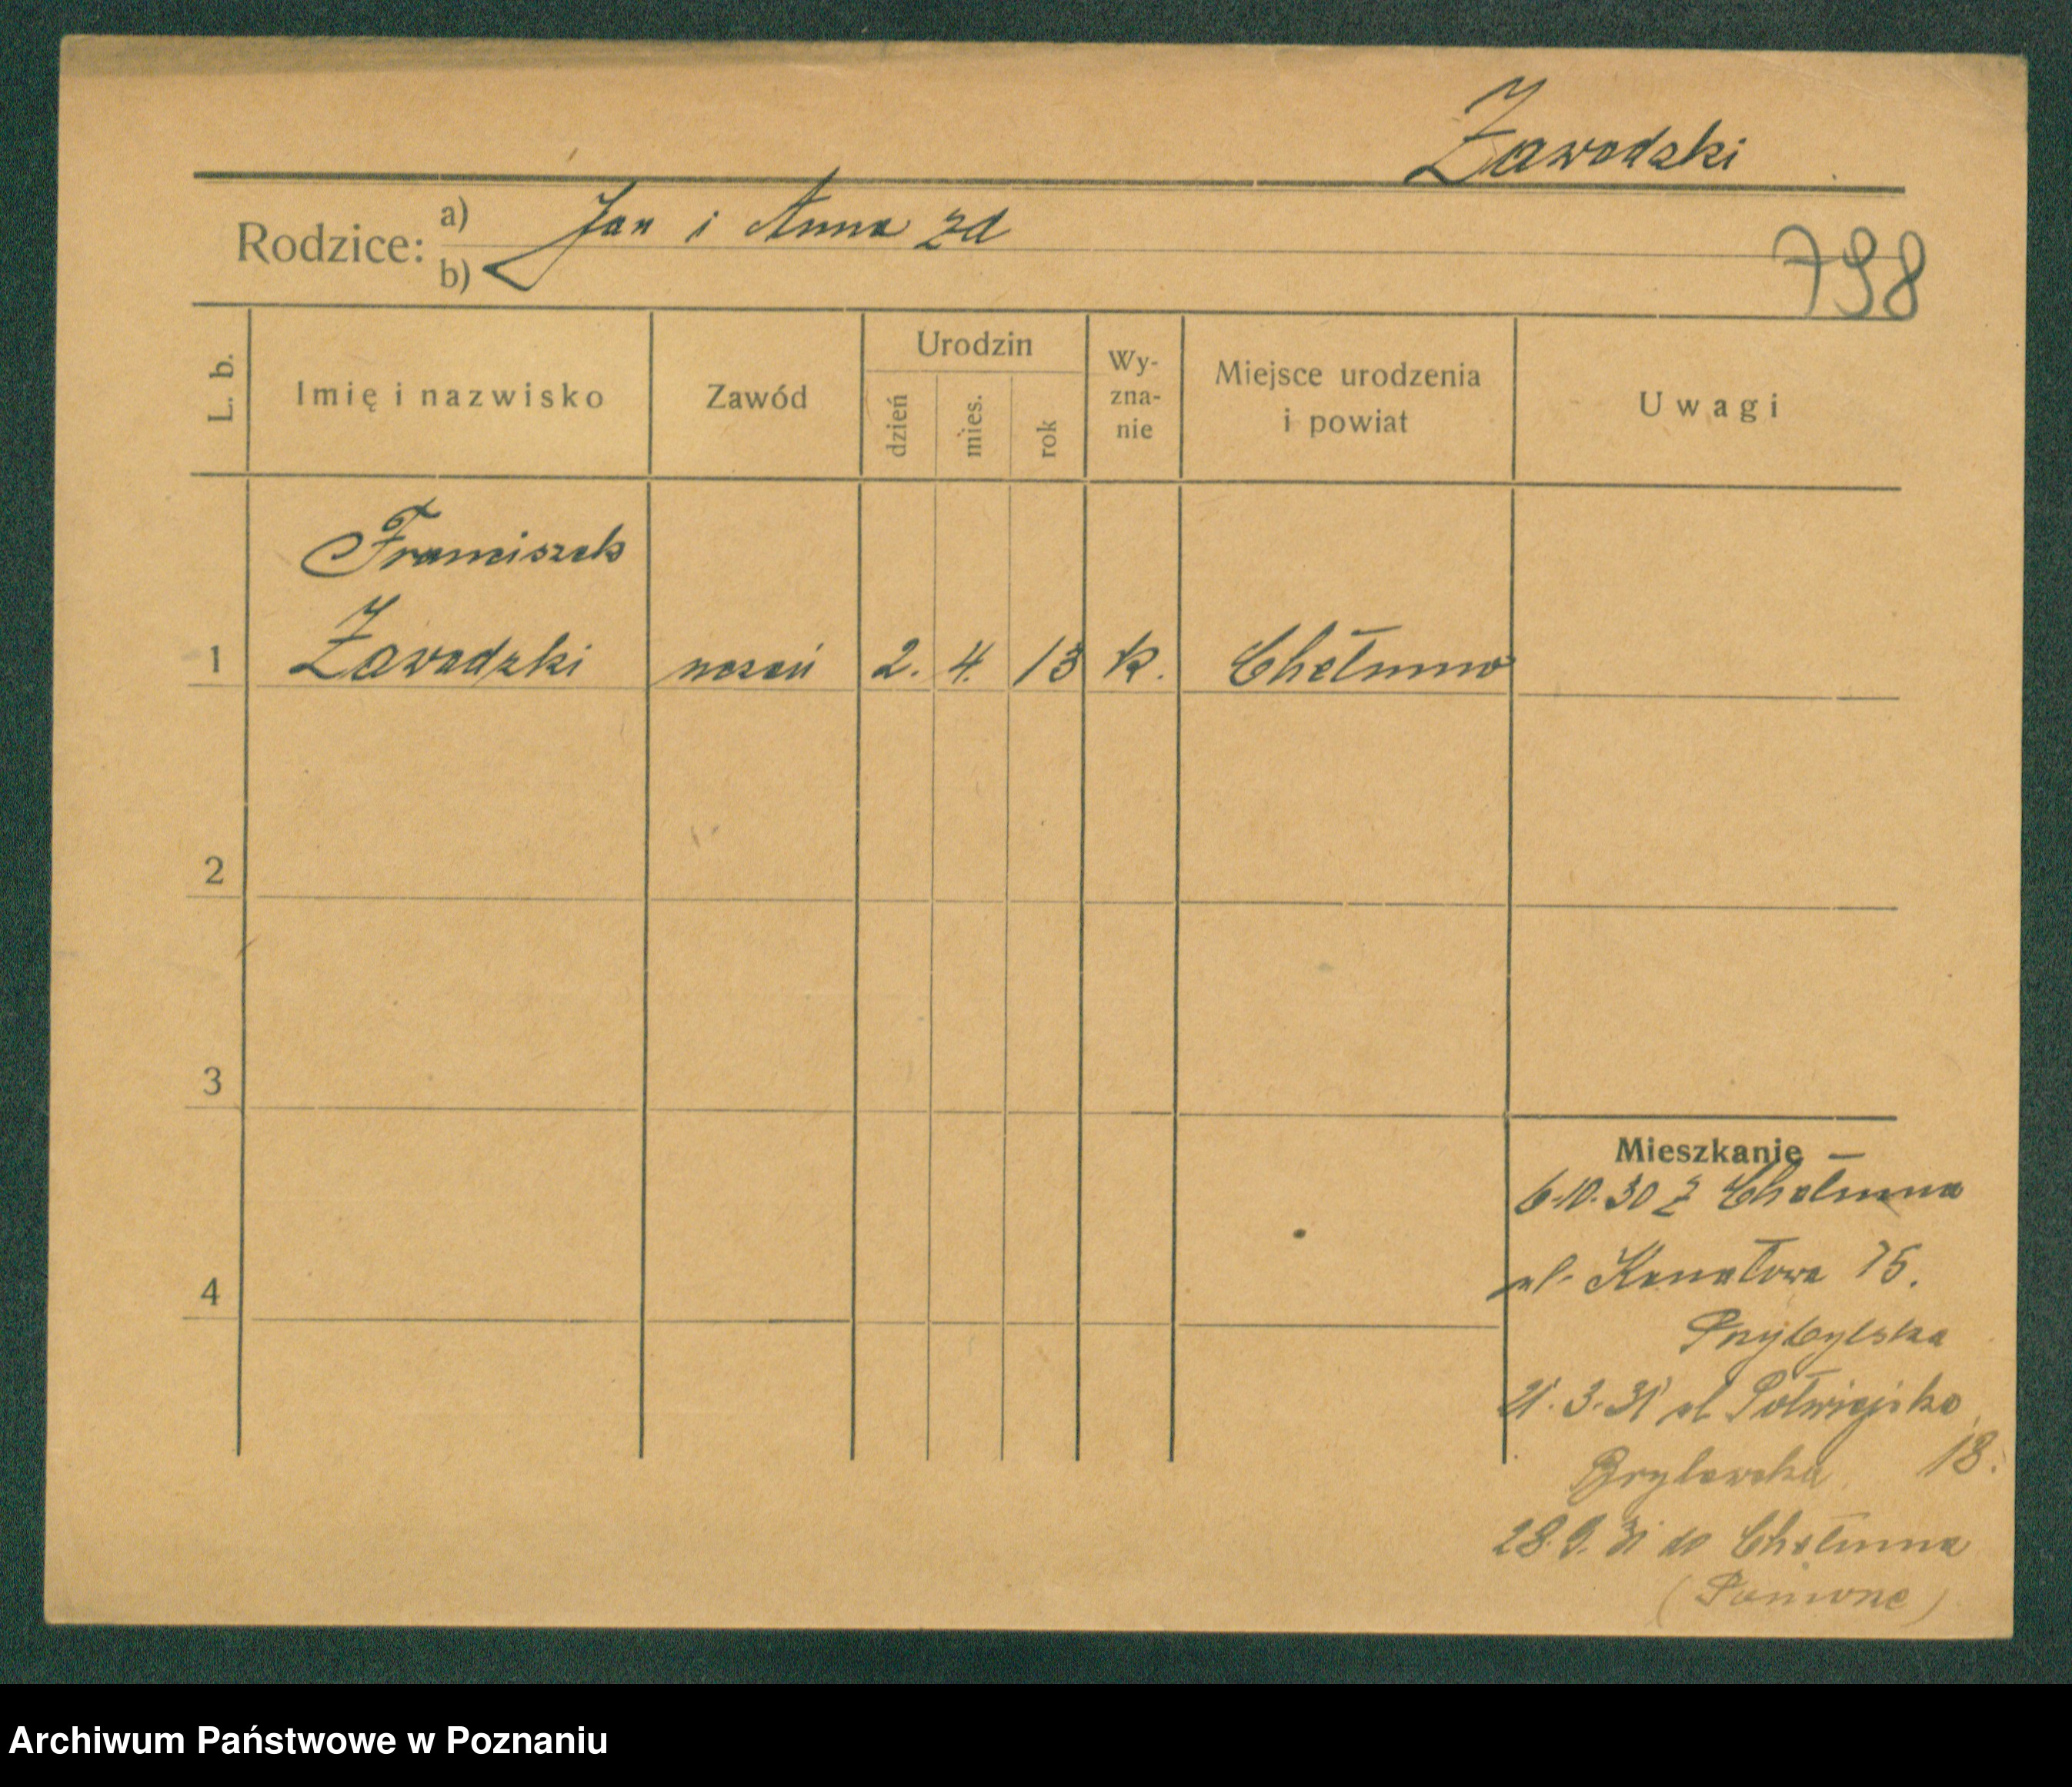 Zawadzki
Rodzice: a) Jan i Anna zd
b)
798
L. b.
Imię i nazwisko
Zawód
Urodzin
dzień
mies.
rok
Wy-
zna-
nie
Miejsce urodzenia
i powiat
Uwagi
Franciszek
1 Zawadzki uczeń 2. 4. 13 k. Chełmno
2
3
4
Mieszkanie
6.10.30 z Chełmna
ul. Kanałowa 15.
Przybylska
21.3.31 ul Półwiejska
Brylewska 18.
28.9.31 do Chełmna
Archiwum Państwowe w Poznaniu